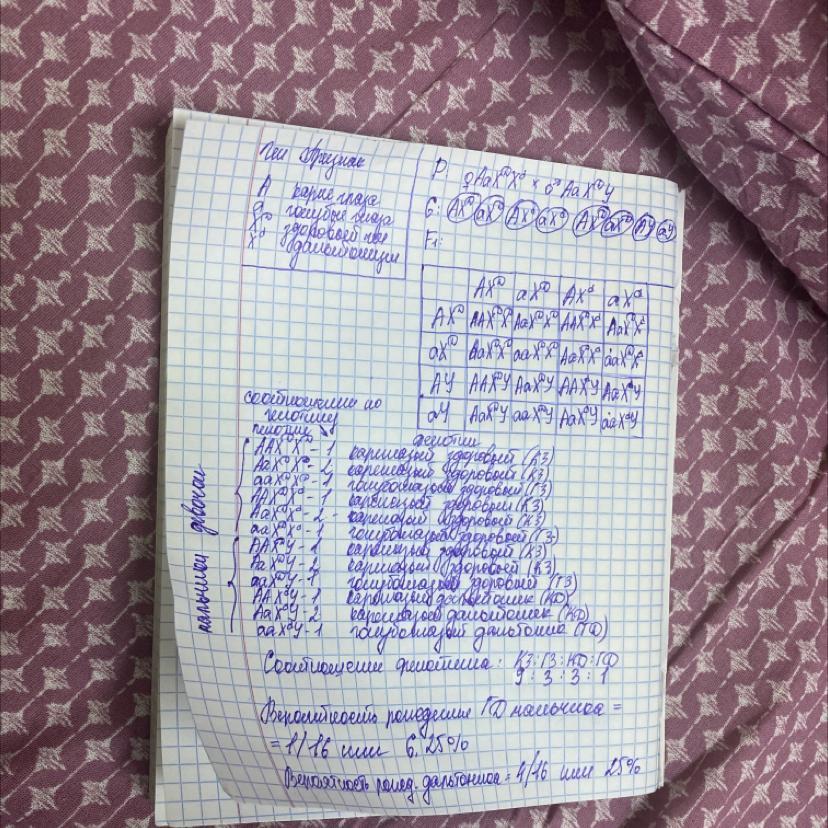 Ген Признак
A карие глаза
a голубые глаза
X^D здоровый ген
X^d дальтонизм
P: ♀AaX^DX^d × ♂AaX^DY
G: AX^D aX^D AX^d aX^d AX^D aX^D AY aY
F₁:
AX^D aX^D AX^d aX^d
AX^D AAX^DX^D AaX^DX^D AAX^DX^d AaX^DX^d
aX^D AaX^DX^D aaX^DX^D AaX^DX^d aaX^DX^d
AY AAX^DY AaX^DY AAX^dY AaX^dY
aY AaX^DY aaX^DY AaX^dY aaX^dY
соотношение по
генотипу
генотип фенотип
девочки
AAX^DX^D - 1 кареглазый здоровый (КЗ)
AaX^DX^D - 2 кареглазый здоровый (КЗ)
aaX^DX^D - 1 голубоглазый здоровый (ГЗ)
AAX^DX^d - 1 кареглазый здоровый (КЗ)
AaX^DX^d - 2 - кареглазый здоровый (КЗ)
aaX^DX^d - 1 голубоглазый здоровый (ГЗ)
мальчики
AAX^DY - 1 кареглазый здоровый (КЗ)
AaX^DY - 2 кареглазый здоровый (КЗ)
aaX^DY - 1 голубоглазый здоровый (ГЗ)
AAX^dY - 1 кареглазый дальтоник (КД)
AaX^dY - 2 кареглазый дальтоник (КД)
aaX^dY - 1 голубоглазый дальтоник (ГД)
Соотношение фенотипа: КЗ:ГЗ:КД:ГД
9 : 3 : 3 : 1
Вероятность рождения ГД мальчика =
= 1/16 или 6,25%
Вероятность рожд. дальтоника = 4/16 или 25%